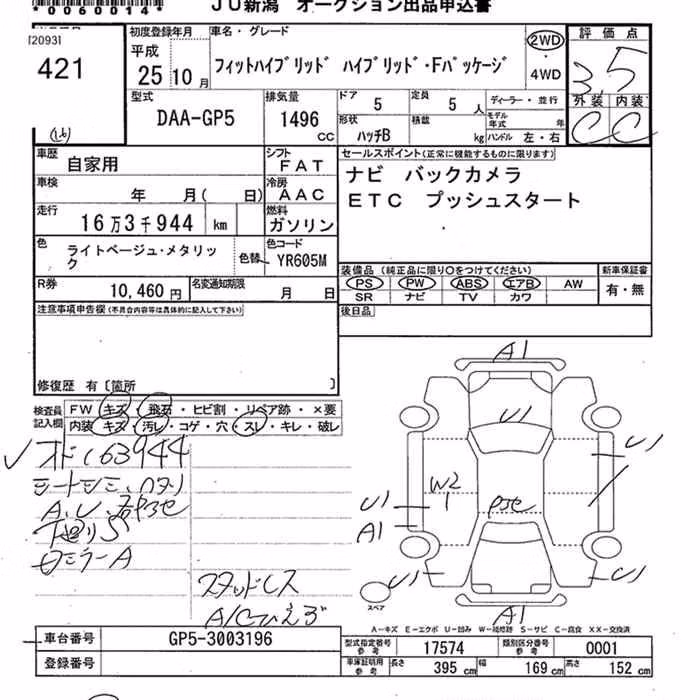 *0060014*
JU新潟 オークション出品申込書
[2093]
421
初度登録年月
平成
25年10月
車名・グレード
フィットハイブリッド ハイブリッド・Fパッケージ
2WD
4WD
評価点
3.5
外装 内装
C C
型式
DAA-GP5
排気量
1496 CC
ドア 5
定員 5 人
ディーラー・並行
形状 ハッチB
積載 kg
モデル年式 年
ハンドル 左・右
車歴 自家用
シフト FAT
車検 年 月( 日)
冷房 AAC
走行 16万3千944 km
燃料 ガソリン
色 ライトベージュ・メタリック
色替
色コード YR605M
R券 10,460 円
名変通知期限 月 日
セールスポイント(正常に機能するものに限ります)
ナビ バックカメラ
ETC プッシュスタート
装備品(純正品に限り○をつけてください)
新車保証書
PS PW ABS エアB AW
有・無
SR ナビ TV カワ
後日品
注意事項申告欄(不具合内容等は具体的に記入して下さい)
修復歴 有〔箇所 〕
検査員記入欄
FW キズ・飛石・ヒビ割・リペア跡・×要
内装 キズ・汚レ・コゲ・穴・スレ・キレ・破レ
オド163944
シートシミ、
A、U、
ミラーA
スタッドレス
A1
U1
U1
W2
1
U1
A1
U1
U1
A1
スペア
A-キズ E-エクボ U-凹み W-補修跡 S-サビ C-腐食 XX-交換済
車台番号 GP5-3003196
登録番号
型式指定番号 参考 17574
類別区分番号 参考 0001
車庫証明用 参考 長さ 395 cm 幅 169 cm 高さ 152 cm